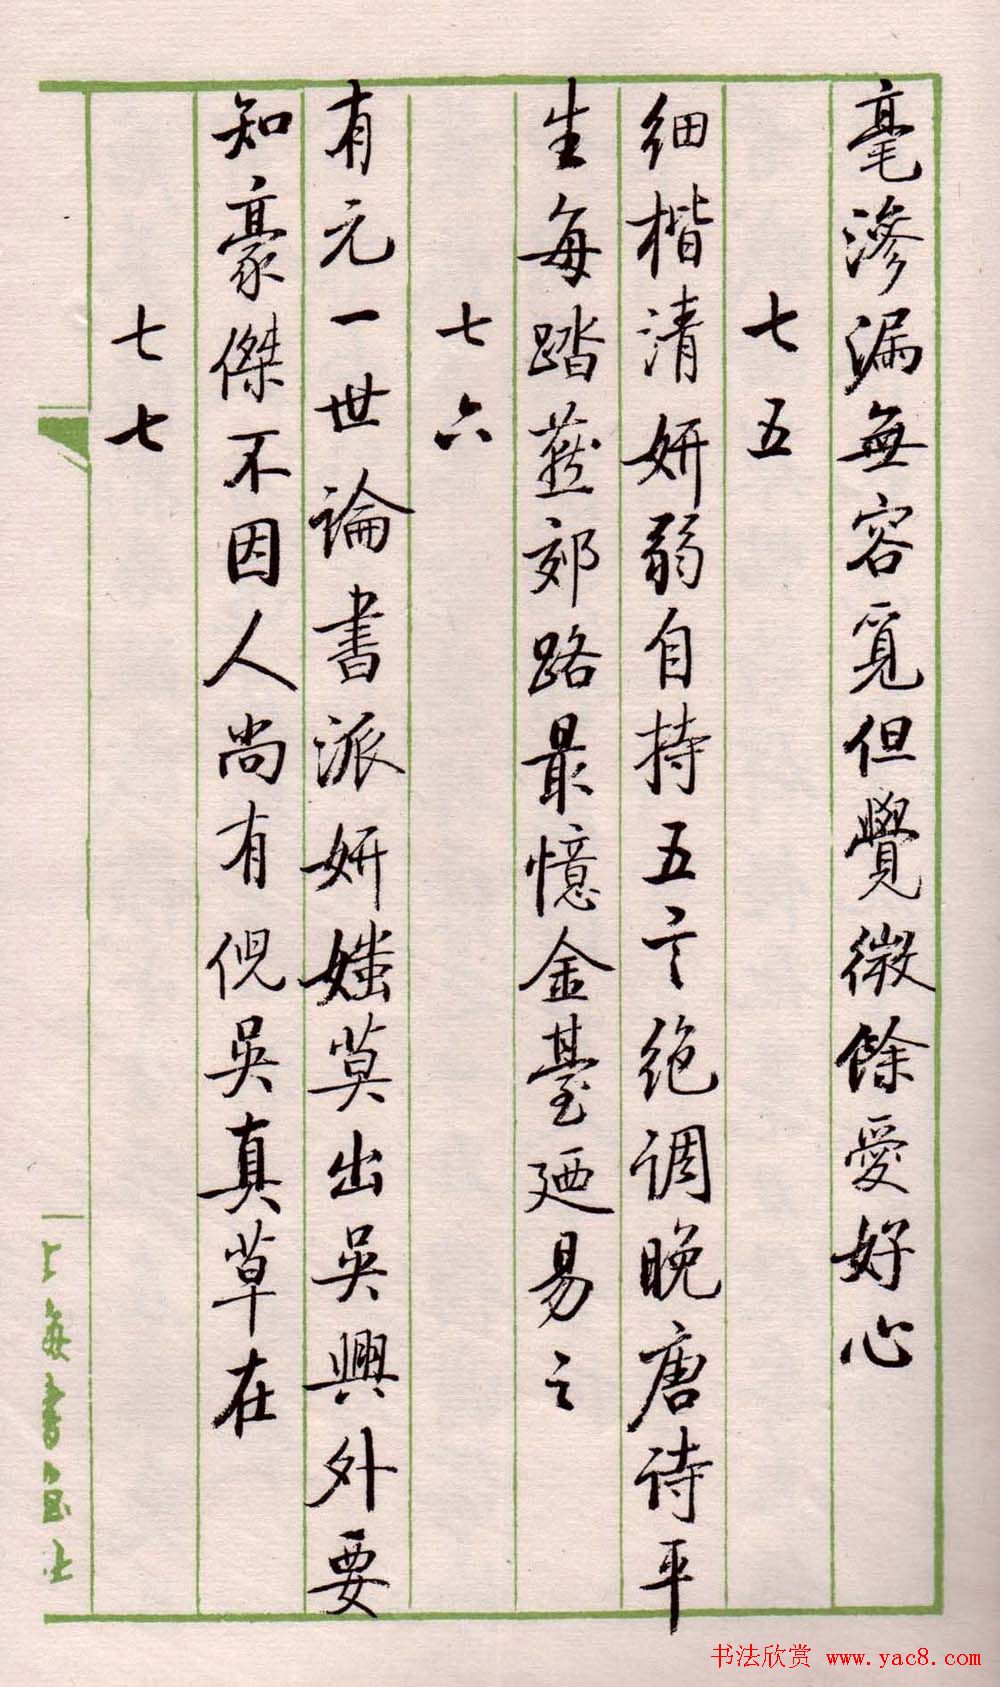 毫滲漏無容覓但覺微餘愛好心
七五
細楷清妍弱自持五言絕調晚唐詩平
生每踏燕郊路最憶金臺廼易之
七六
有元一世論書派妍媸莫出吳興外要
知豪傑不因人尚有倪吳真草在
七七
上海書畫社
书法欣赏 www.yac8.com